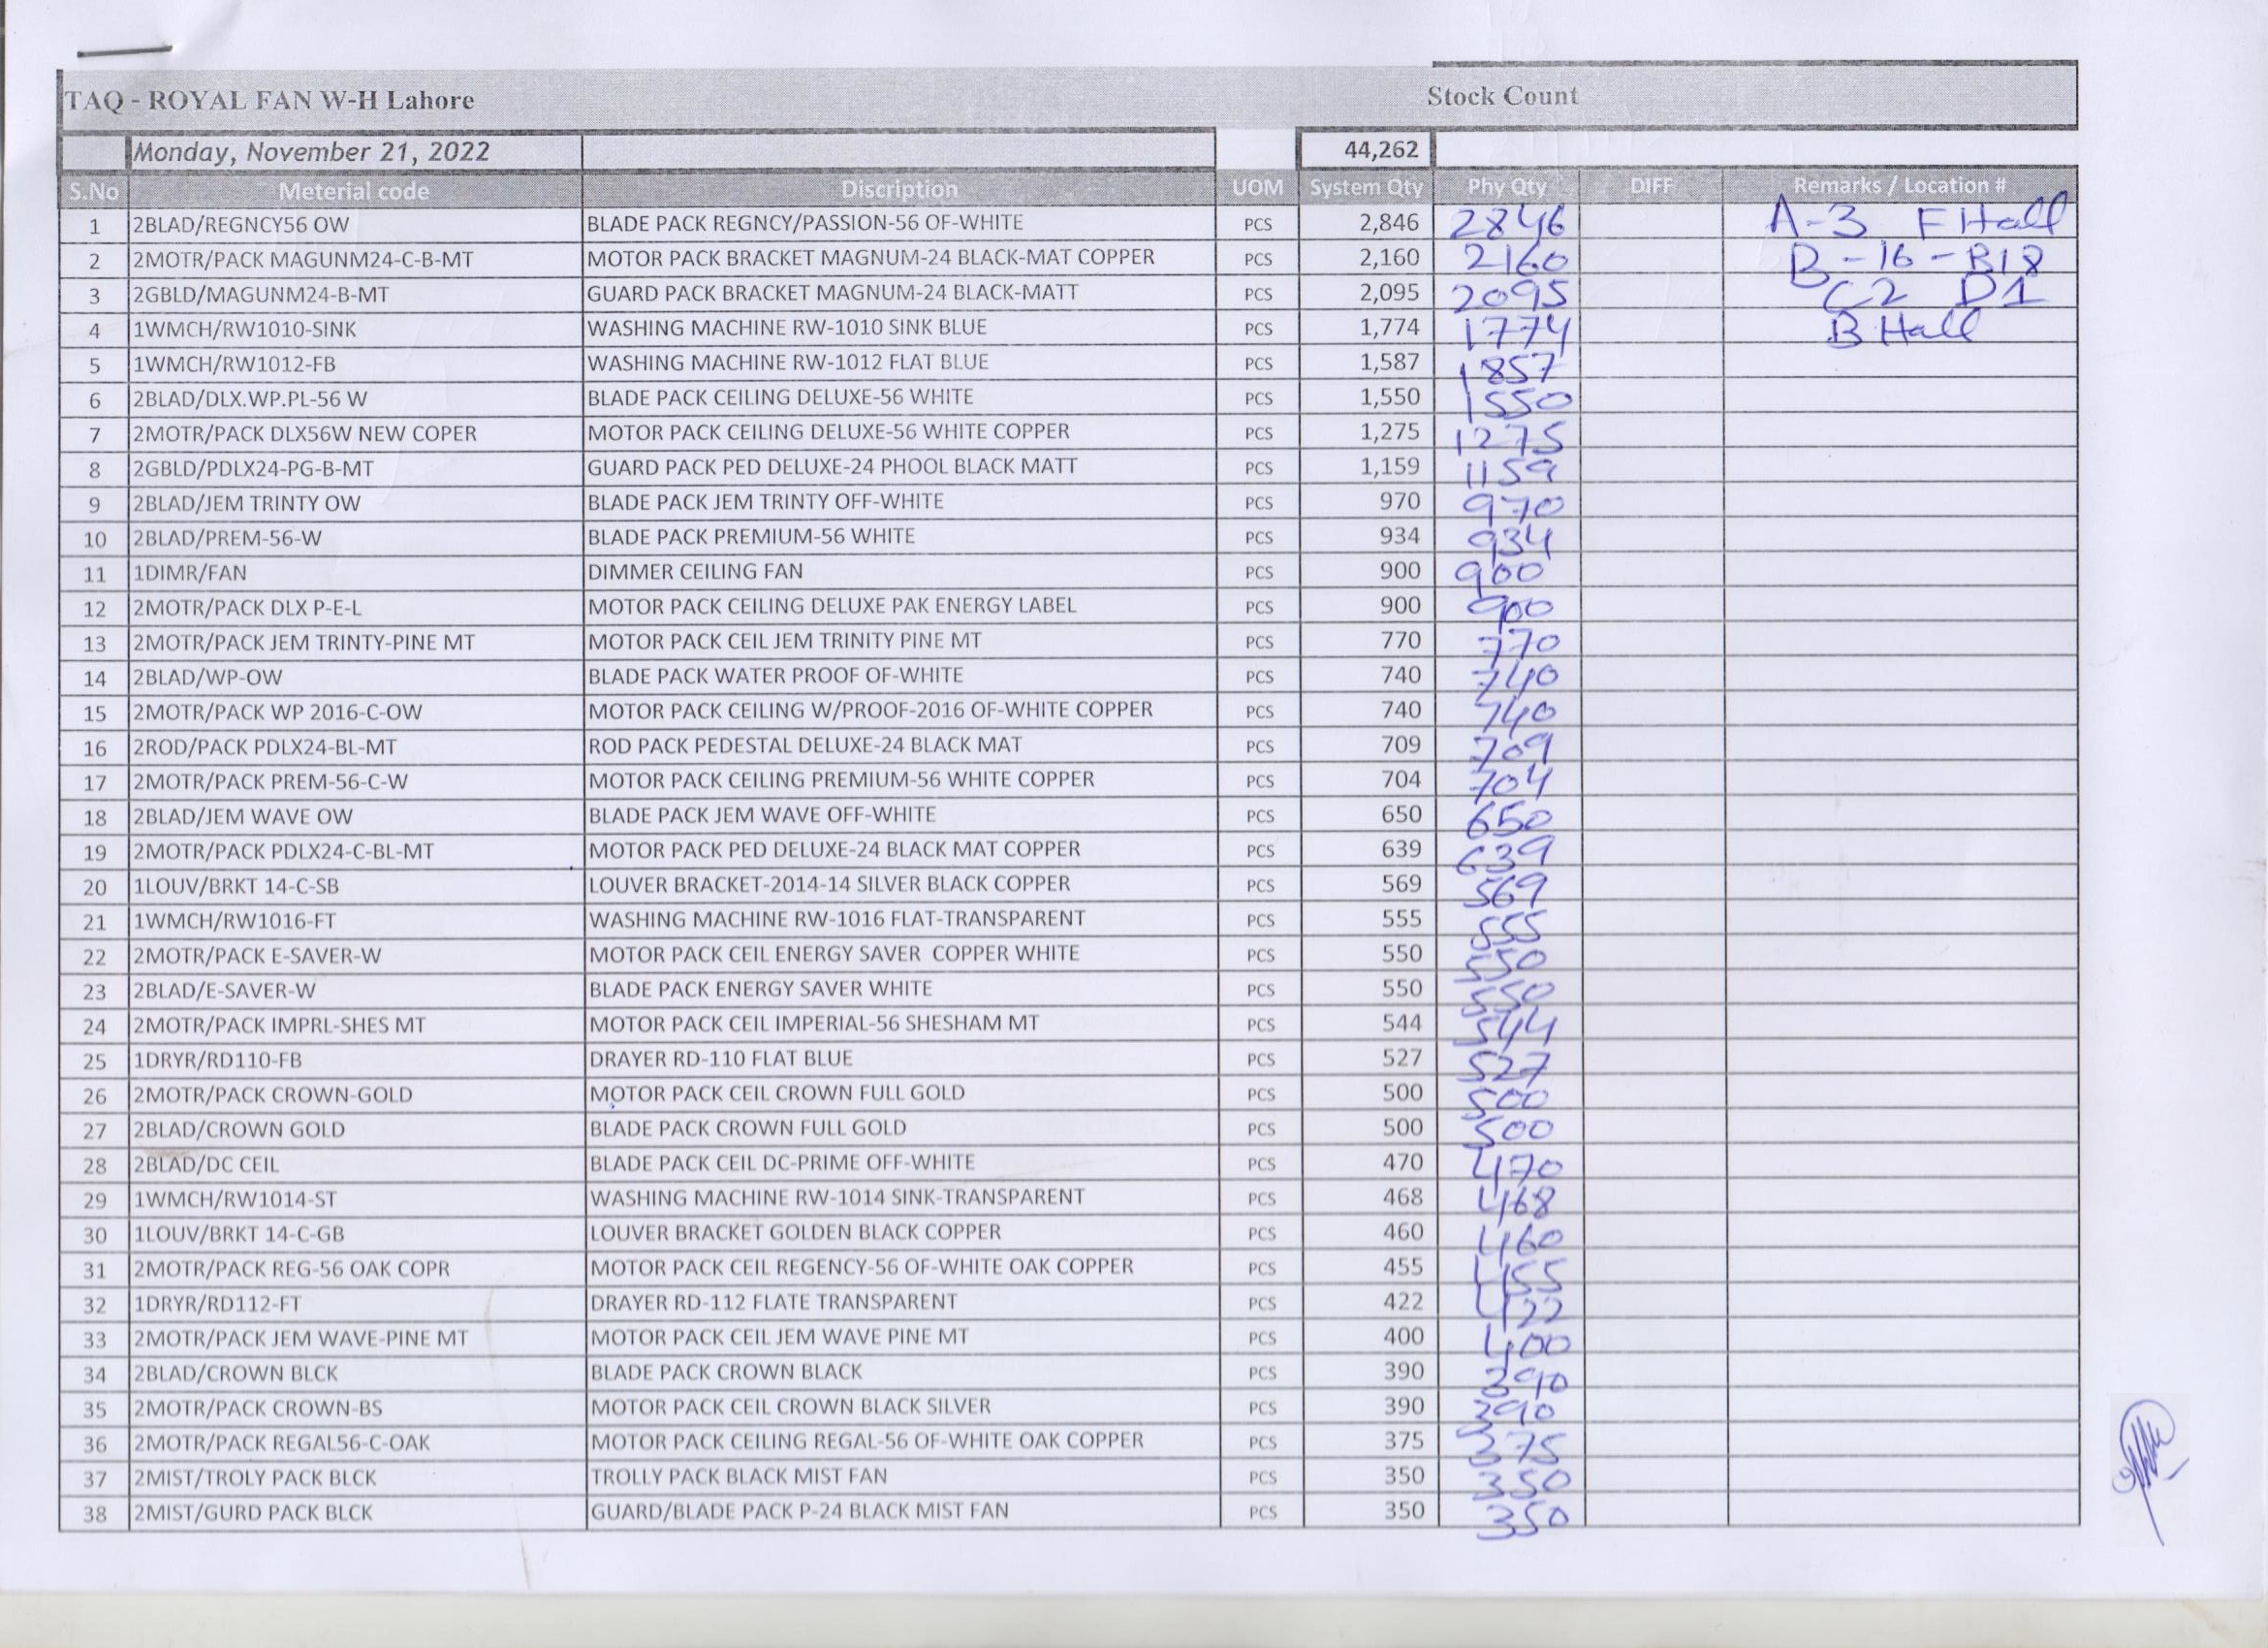 TAQ - ROYAL FAN W-H Lahore Stock Count
Monday, November 21, 2022 44,262
S.No Meterial code Discription UOM System Qty Phy Qty DIFF Remarks / Location #
1 2BLAD/REGNCY56 OW BLADE PACK REGNCY/PASSION-56 OF-WHITE PCS 2,846 2846 A-3 F Hall
2 2MOTR/PACK MAGUNM24-C-B-MT MOTOR PACK BRACKET MAGNUM-24 BLACK-MAT COPPER PCS 2,160 2160 B-16-B18
3 2GBLD/MAGUNM24-B-MT GUARD PACK BRACKET MAGNUM-24 BLACK-MATT PCS 2,095 2095 C2 D1
4 1WMCH/RW1010-SINK WASHING MACHINE RW-1010 SINK BLUE PCS 1,774 1774 B Hall
5 1WMCH/RW1012-FB WASHING MACHINE RW-1012 FLAT BLUE PCS 1,587 1857
6 2BLAD/DLX.WP.PL-56 W BLADE PACK CEILING DELUXE-56 WHITE PCS 1,550 1550
7 2MOTR/PACK DLX56W NEW COPER MOTOR PACK CEILING DELUXE-56 WHITE COPPER PCS 1,275 1275
8 2GBLD/PDLX24-PG-B-MT GUARD PACK PED DELUXE-24 PHOOL BLACK MATT PCS 1,159 1159
9 2BLAD/JEM TRINTY OW BLADE PACK JEM TRINTY OFF-WHITE PCS 970 970
10 2BLAD/PREM-56-W BLADE PACK PREMIUM-56 WHITE PCS 934 934
11 1DIMR/FAN DIMMER CEILING FAN PCS 900 900
12 2MOTR/PACK DLX P-E-L MOTOR PACK CEILING DELUXE PAK ENERGY LABEL PCS 900 900
13 2MOTR/PACK JEM TRINTY-PINE MT MOTOR PACK CEIL JEM TRINITY PINE MT PCS 770 770
14 2BLAD/WP-OW BLADE PACK WATER PROOF OF-WHITE PCS 740 740
15 2MOTR/PACK WP 2016-C-OW MOTOR PACK CEILING W/PROOF-2016 OF-WHITE COPPER PCS 740 740
16 2ROD/PACK PDLX24-BL-MT ROD PACK PEDESTAL DELUXE-24 BLACK MAT PCS 709 709
17 2MOTR/PACK PREM-56-C-W MOTOR PACK CEILING PREMIUM-56 WHITE COPPER PCS 704 704
18 2BLAD/JEM WAVE OW BLADE PACK JEM WAVE OFF-WHITE PCS 650 650
19 2MOTR/PACK PDLX24-C-BL-MT MOTOR PACK PED DELUXE-24 BLACK MAT COPPER PCS 639 639
20 1LOUV/BRKT 14-C-SB LOUVER BRACKET-2014-14 SILVER BLACK COPPER PCS 569 569
21 1WMCH/RW1016-FT WASHING MACHINE RW-1016 FLAT-TRANSPARENT PCS 555 555
22 2MOTR/PACK E-SAVER-W MOTOR PACK CEIL ENERGY SAVER COPPER WHITE PCS 550 550
23 2BLAD/E-SAVER-W BLADE PACK ENERGY SAVER WHITE PCS 550 550
24 2MOTR/PACK IMPRL-SHES MT MOTOR PACK CEIL IMPERIAL-56 SHESHAM MT PCS 544 544
25 1DRYR/RD110-FB DRAYER RD-110 FLAT BLUE PCS 527 527
26 2MOTR/PACK CROWN-GOLD MOTOR PACK CEIL CROWN FULL GOLD PCS 500 500
27 2BLAD/CROWN GOLD BLADE PACK CROWN FULL GOLD PCS 500 500
28 2BLAD/DC CEIL BLADE PACK CEIL DC-PRIME OFF-WHITE PCS 470 470
29 1WMCH/RW1014-ST WASHING MACHINE RW-1014 SINK-TRANSPARENT PCS 468 468
30 1LOUV/BRKT 14-C-GB LOUVER BRACKET GOLDEN BLACK COPPER PCS 460 460
31 2MOTR/PACK REG-56 OAK COPR MOTOR PACK CEIL REGENCY-56 OF-WHITE OAK COPPER PCS 455 455
32 1DRYR/RD112-FT DRAYER RD-112 FLATE TRANSPARENT PCS 422 422
33 2MOTR/PACK JEM WAVE-PINE MT MOTOR PACK CEIL JEM WAVE PINE MT PCS 400 400
34 2BLAD/CROWN BLCK BLADE PACK CROWN BLACK PCS 390 390
35 2MOTR/PACK CROWN-BS MOTOR PACK CEIL CROWN BLACK SILVER PCS 390 390
36 2MOTR/PACK REGAL56-C-OAK MOTOR PACK CEILING REGAL-56 OF-WHITE OAK COPPER PCS 375 375
37 2MIST/TROLY PACK BLCK TROLLY PACK BLACK MIST FAN PCS 350 350
38 2MIST/GURD PACK BLCK GUARD/BLADE PACK P-24 BLACK MIST FAN PCS 350 350